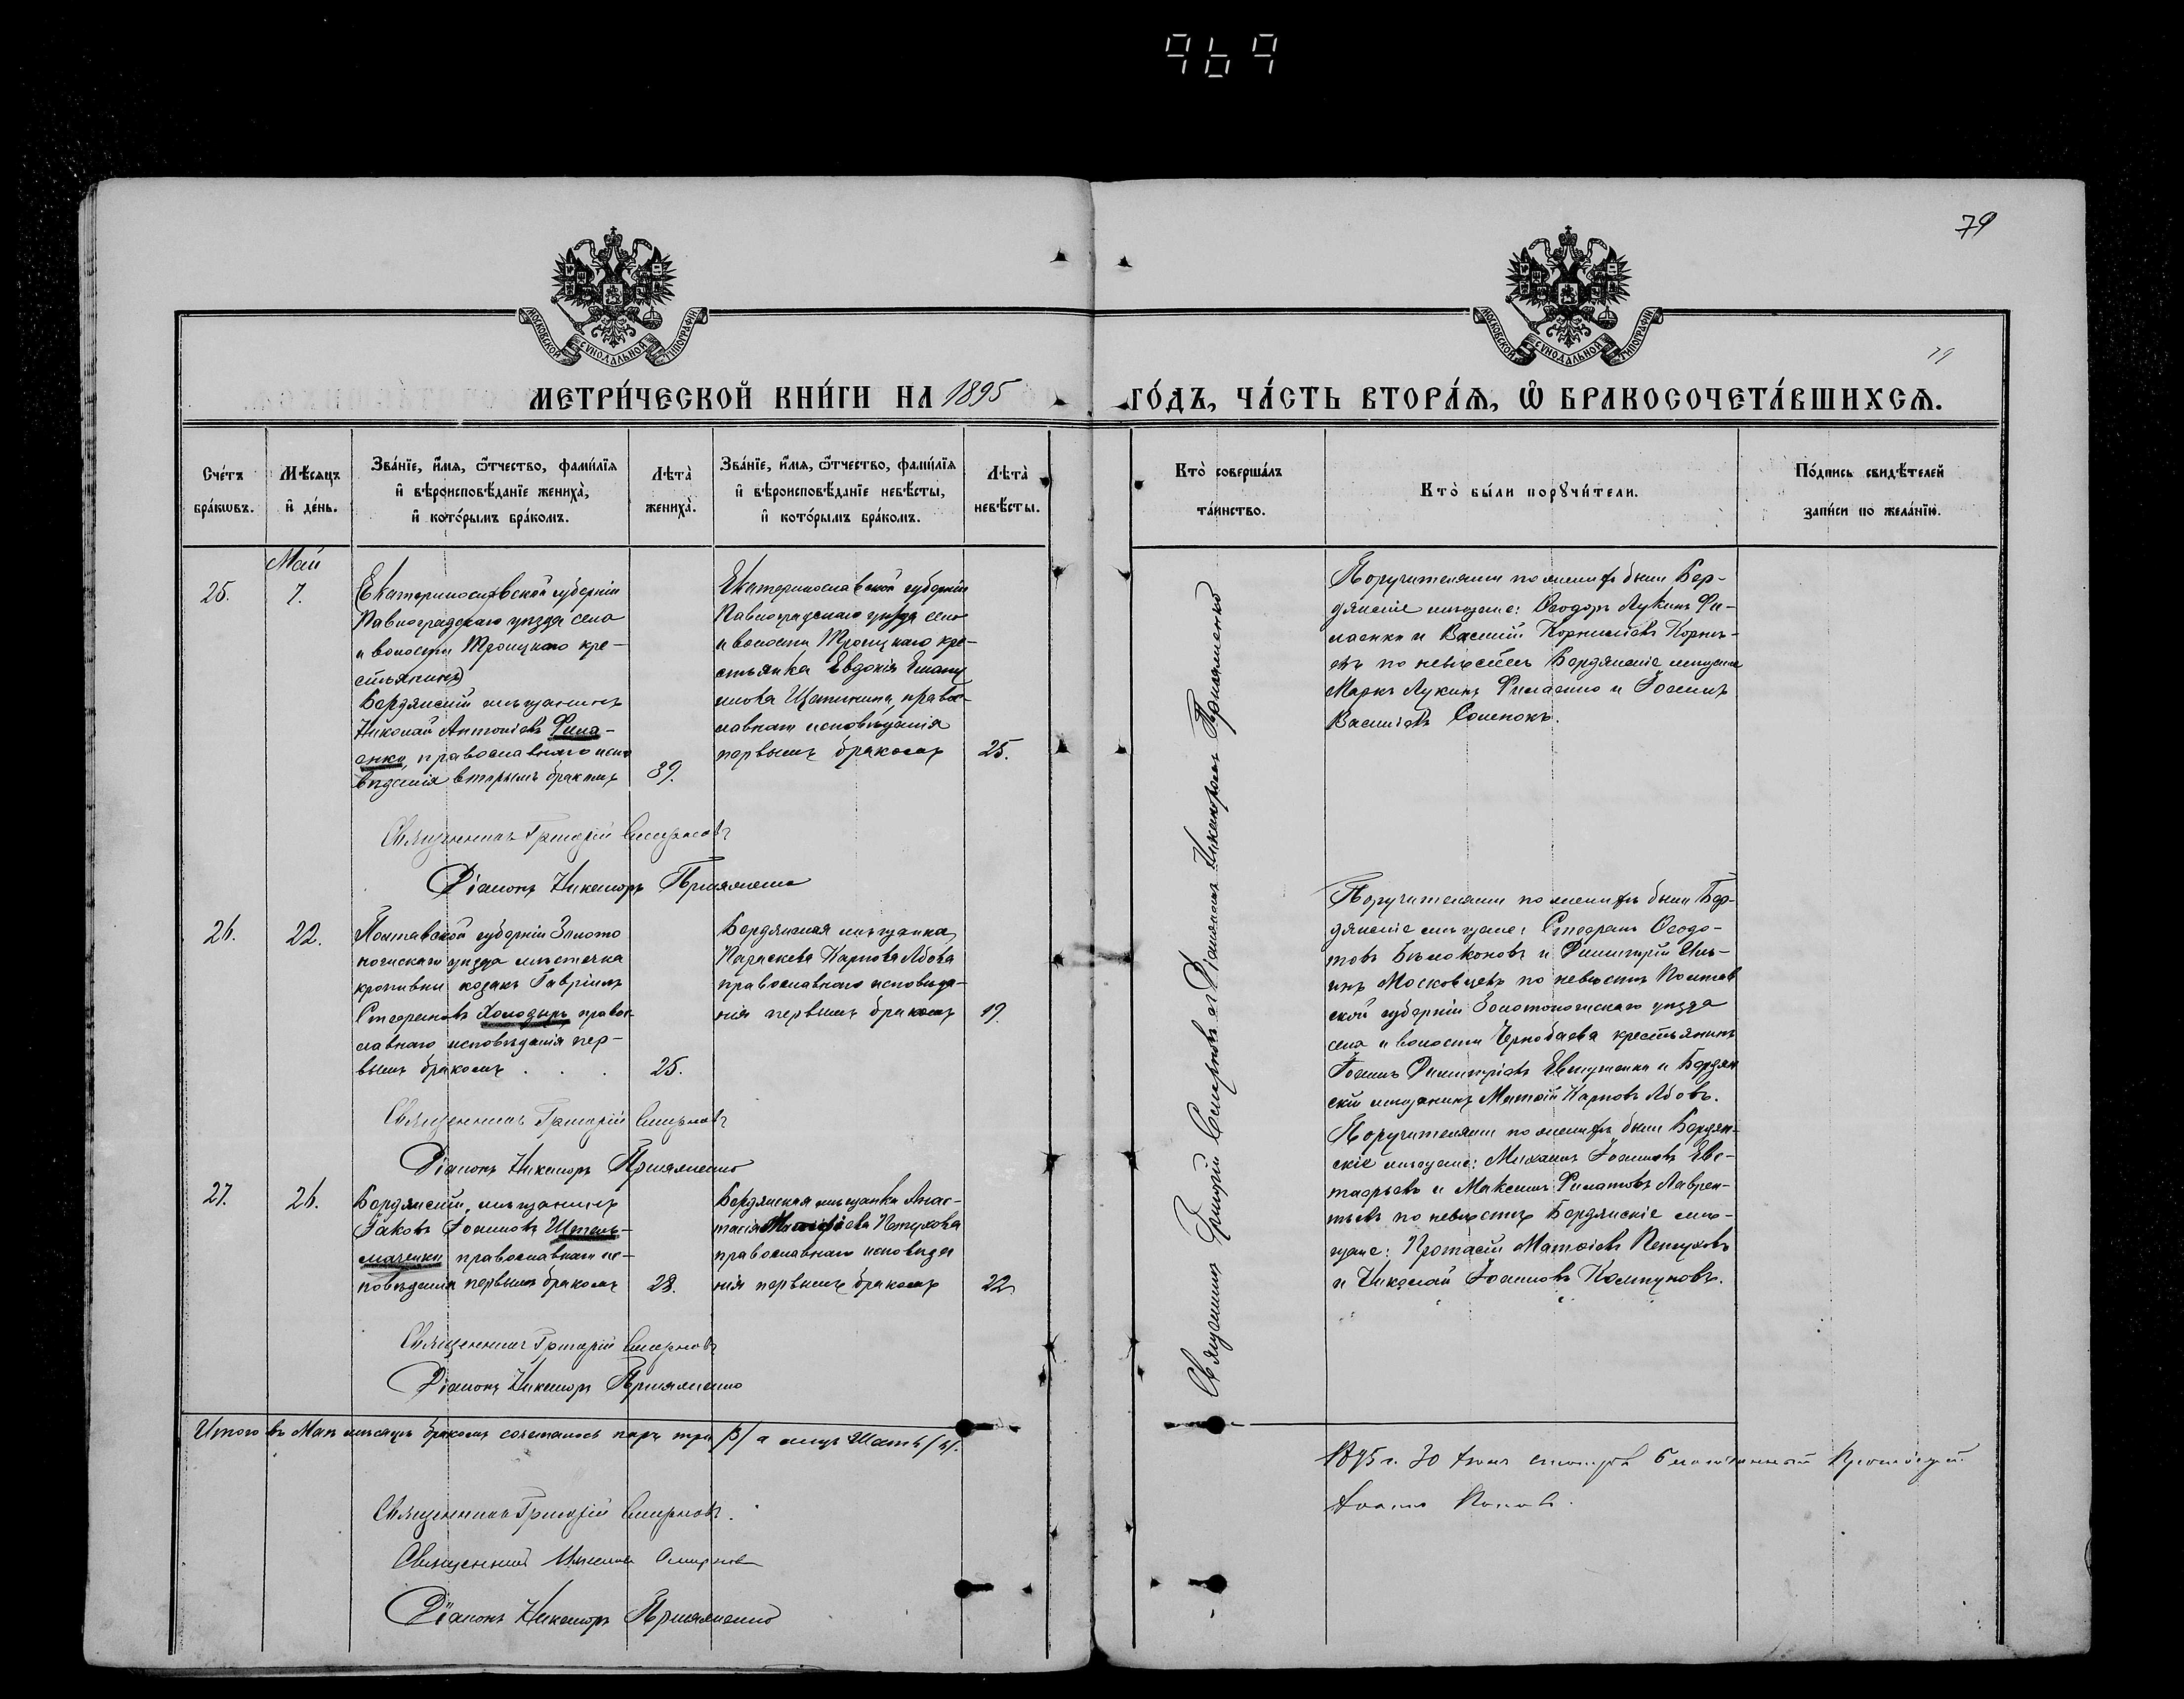 969
79
МОСКОВСКОЙ СѴНОДАЛЬНОЙ ТИПОГРАФІИ
МОСКОВСКОЙ СѴНОДАЛЬНОЙ ТИПОГРАФІИ
79
МЕТРИ́ЧЕСКОЙ КНИ́ГИ НА 1895 ГО́ДЪ, ЧА́СТЬ ВТОРА́Ѧ, Ѡ҆ БРАКОСОЧЕТА́ВШИХСѦ.
Сче́тъ бра́кѡвъ.
Мѣ́сяцъ и҆ де́нь.
Зва́нїе, и҆́мя, ѻ҆́тчество, фами́лїя и҆ вѣроисповѣ́данїе жениха̀, и҆ кото́рымъ бра́комъ.
Лѣта̀ жениха̀.
Зва́нїе, и҆́мя, ѻ҆́тчество, фами́лїя и҆ вѣроисповѣ́данїе невѣ́сты, и҆ кото́рымъ бра́комъ.
Лѣта̀ невѣ́сты.
Кто̀ соверша́лъ та́инство.
Кто̀ бы́ли порꙋчи́тели.
По́дпись свидѣ́телей за́писи по жела́нїю.
Май
25.
7.
Екатеринославской губерніи
Павлоградскаго уѣзда села
и волости Троицкаго кре-
стьянинъ)
Бердянскій мѣщанинъ
Николай Антоніевъ Фила-
енко, православнаго испо
вѣданія вторымъ бракомъ
39.
Екатеринославской губерніи
Павлоградскаго уѣзда села
и волости Троицкаго кре-
стьянка Евдокія
нова православнаго
славнаго исповѣданія
первымъ бракомъ
25.
Священникъ Григорій Смирновъ
Діаконъ Никаноръ Прияменко
Поручителями по женихѣ были Бер-
дянскіе мѣщане: Ѳеодоръ Лукинъ Фи-
лаенко и Василій Корниліевъ Корнѣ-
евъ по невѣстѣ Бердянскіе мѣщане
Маркъ Лукинъ Филаенко и Іоаннъ
Василіевъ Соленокъ.
Священникъ Григорій Смирновъ съ Діакономъ Никаноромъ Прияменко
26.
22.
Полтавской губерніи Золото
ношскаго уѣзда мѣстечка
кропивны козакъ Гавріилъ
Стефановъ Холодыръ, право-
славнаго исповѣданія пер-
вымъ бракомъ . . .
25.
Бердянская мѣщанка
Параскева Карпова Лбова
православнаго исповѣда-
нія первымъ бракомъ
19.
Священникъ Григорій Смирновъ
Діаконъ Никаноръ Прияменко
Поручителями по женихѣ были Бер-
дянскіе мѣщане: Стефанъ Ѳеодо-
товъ Бѣлоконовъ и Димитрій Иль-
инъ Московцевъ по невѣстѣ Полтав
ской губерніи Золотоношскаго уѣзда
села и волости Чернобаева крестьянинъ
Іоаннъ Димитріевъ Евтушенко и Бердян
скій мѣщанинъ Матѳій Карповъ Лбовъ.
27.
26.
Бердянскій мѣщанинъ
Іаковъ Іоанновъ Штель-
маченко православнаго ис-
повѣданія первымъ бракомъ
28.
Бердянская мѣщанка Анас-
тасія Матѳіева Петухова
православнаго исповѣда
нія первымъ бракомъ
22
Священникъ Григорій Смирновъ
Діаконъ Никаноръ Прияменко
Поручителями по женихѣ были Бердян-
скіе мѣщане: Михаилъ Іоанновъ Евс-
тафьевъ и Максимъ Филатовъ Лаврен-
тьевъ по невѣстѣ Бердянскіе мѣ-
щане: Протасій Матѳіевъ Петуховъ
и Николай Іоанновъ Колтуновъ.
Итого въ Маѣ мѣсяцѣ бракомъ сочеталось паръ три /3/ а лицъ Шесть /6/.
Священникъ Григорій Смирновъ.
Священникъ Смирновъ
Діаконъ Никаноръ Прияменко
1895 г. 30 Іюня смотрѣлъ Благочинный Протоіерей
Іоаннъ Поповъ.